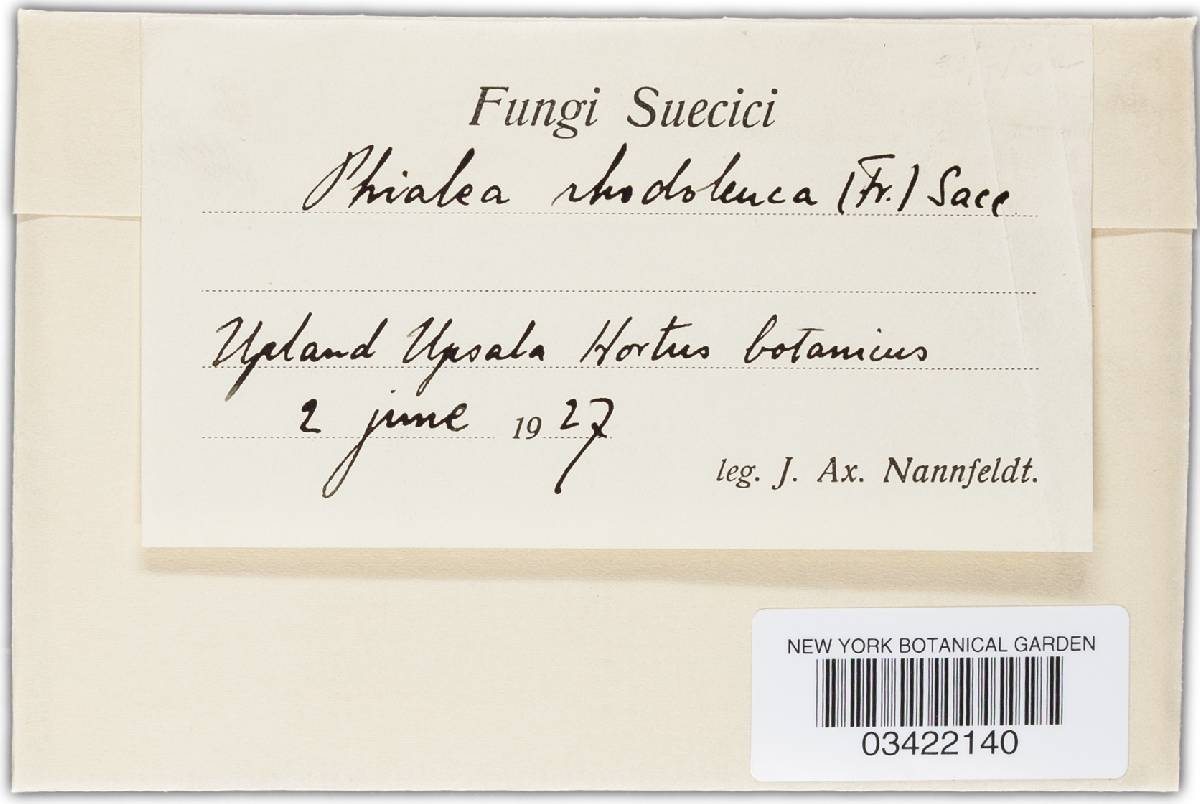 Fungi Suecici
Phialea rhodoleuca (Fr.) Sacc
Upland Upsala Hortus botanicus
2 june 1927
leg. J. Ax. Nannfeldt.
NEW YORK BOTANICAL GARDEN
03422140